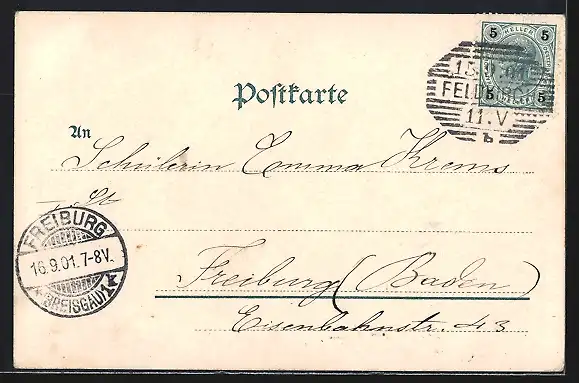 5 HELLER 5
5 5
15.9.01
FELDKIRCH
11.V
b
Postkarte
An
Schülerin Emma Krems
FREIBURG
16.9.01.7-8V.
(BREISGAU) 1
Freiburg (Baden)
Eisenbahnstr. 43